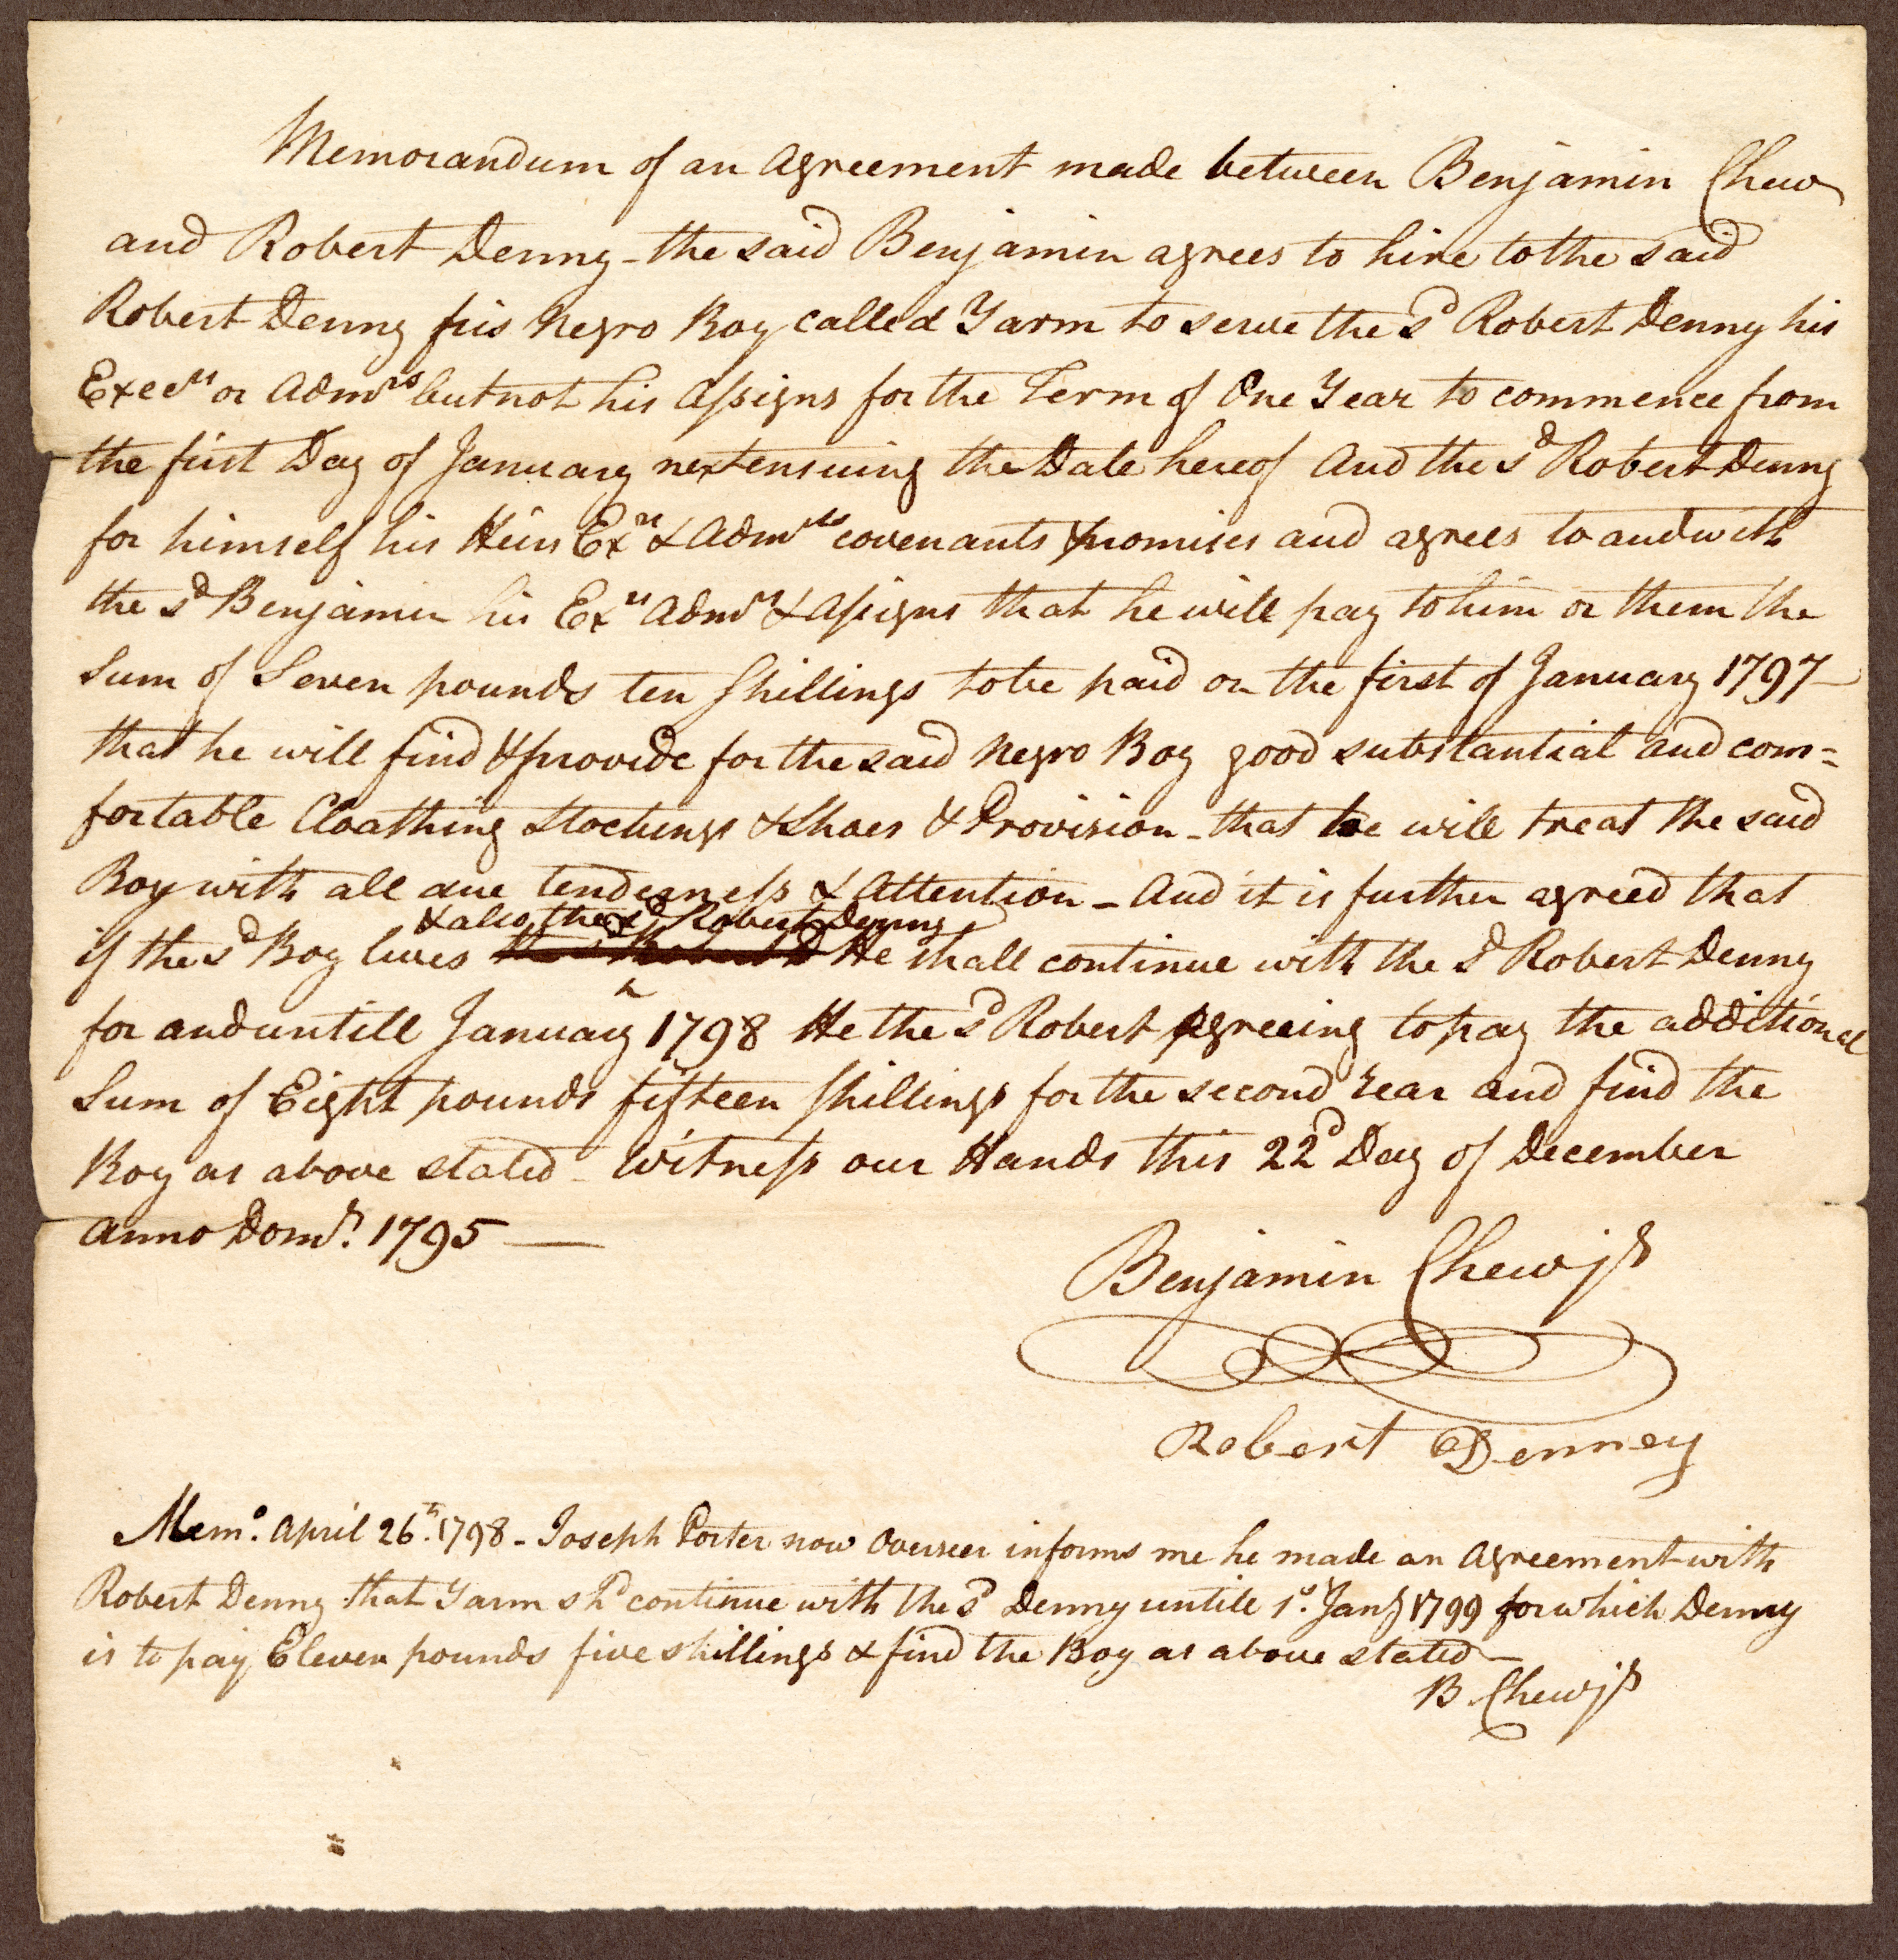 Memorandum of an Agreement made between Benjamin Chew
and Robert Denny - the said Benjamin agrees to hire to the said
Robert Denny his Negro Boy called Yarm to serve the sd Robert Denny his
Execrs or Admrs but not his Assigns for the Term of One Year to commence from
the first Day of January next ensuing the Date hereof And the sd Robert Denny
for himself his Heirs Exrs & Admrs covenants promises and agrees to and with
the sd Benjamin his Exrs Admrs & Assigns that he will pay to him or them the
Sum of Seven pounds ten Shillings to be paid on the first of January 1797 -
that he will find & provide for the said Negro Boy good substantial and com=
fortable Cloathing Stockings & Shoes & Provision - that he will treat the said
Boy with all due tenderness & Attention - And it is further agreed that
& also the sd Robert Denny
if the sd Boy lives He shall continue with the sd Robert Denny
for and untill January 1798 He the sd Robert Agreeing to pay the additional
Sum of Eight pounds fifteen Shillings for the second Year and find the
Boy as above stated - Witness our Hands this 22d Day of December
Anno Domi. 1795 —
Benjamin Chew jr
Robert Denney
Memo. April 26th. 1798 - Joseph Porter now Overseer informs me he made an Agreement with
Robert Denny that Yarm shd continue with the sd Denny untill 1st. Jany 1799 for which Denny
is to pay Eleven pounds five shillings & find the Boy as above stated -
B Chew jr